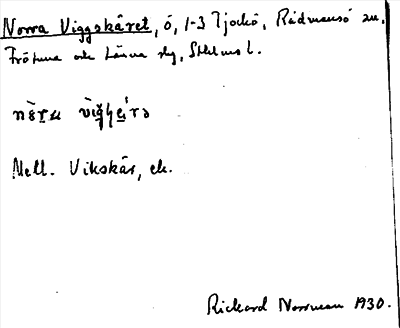 Norra Viggskäret, ö, 1-3 Tjockö, Rådmansö sn.
Frötuna och Länna slg, Sthlms l.
Mell. Vikskär, ek.
Rickard Norrman 1930.